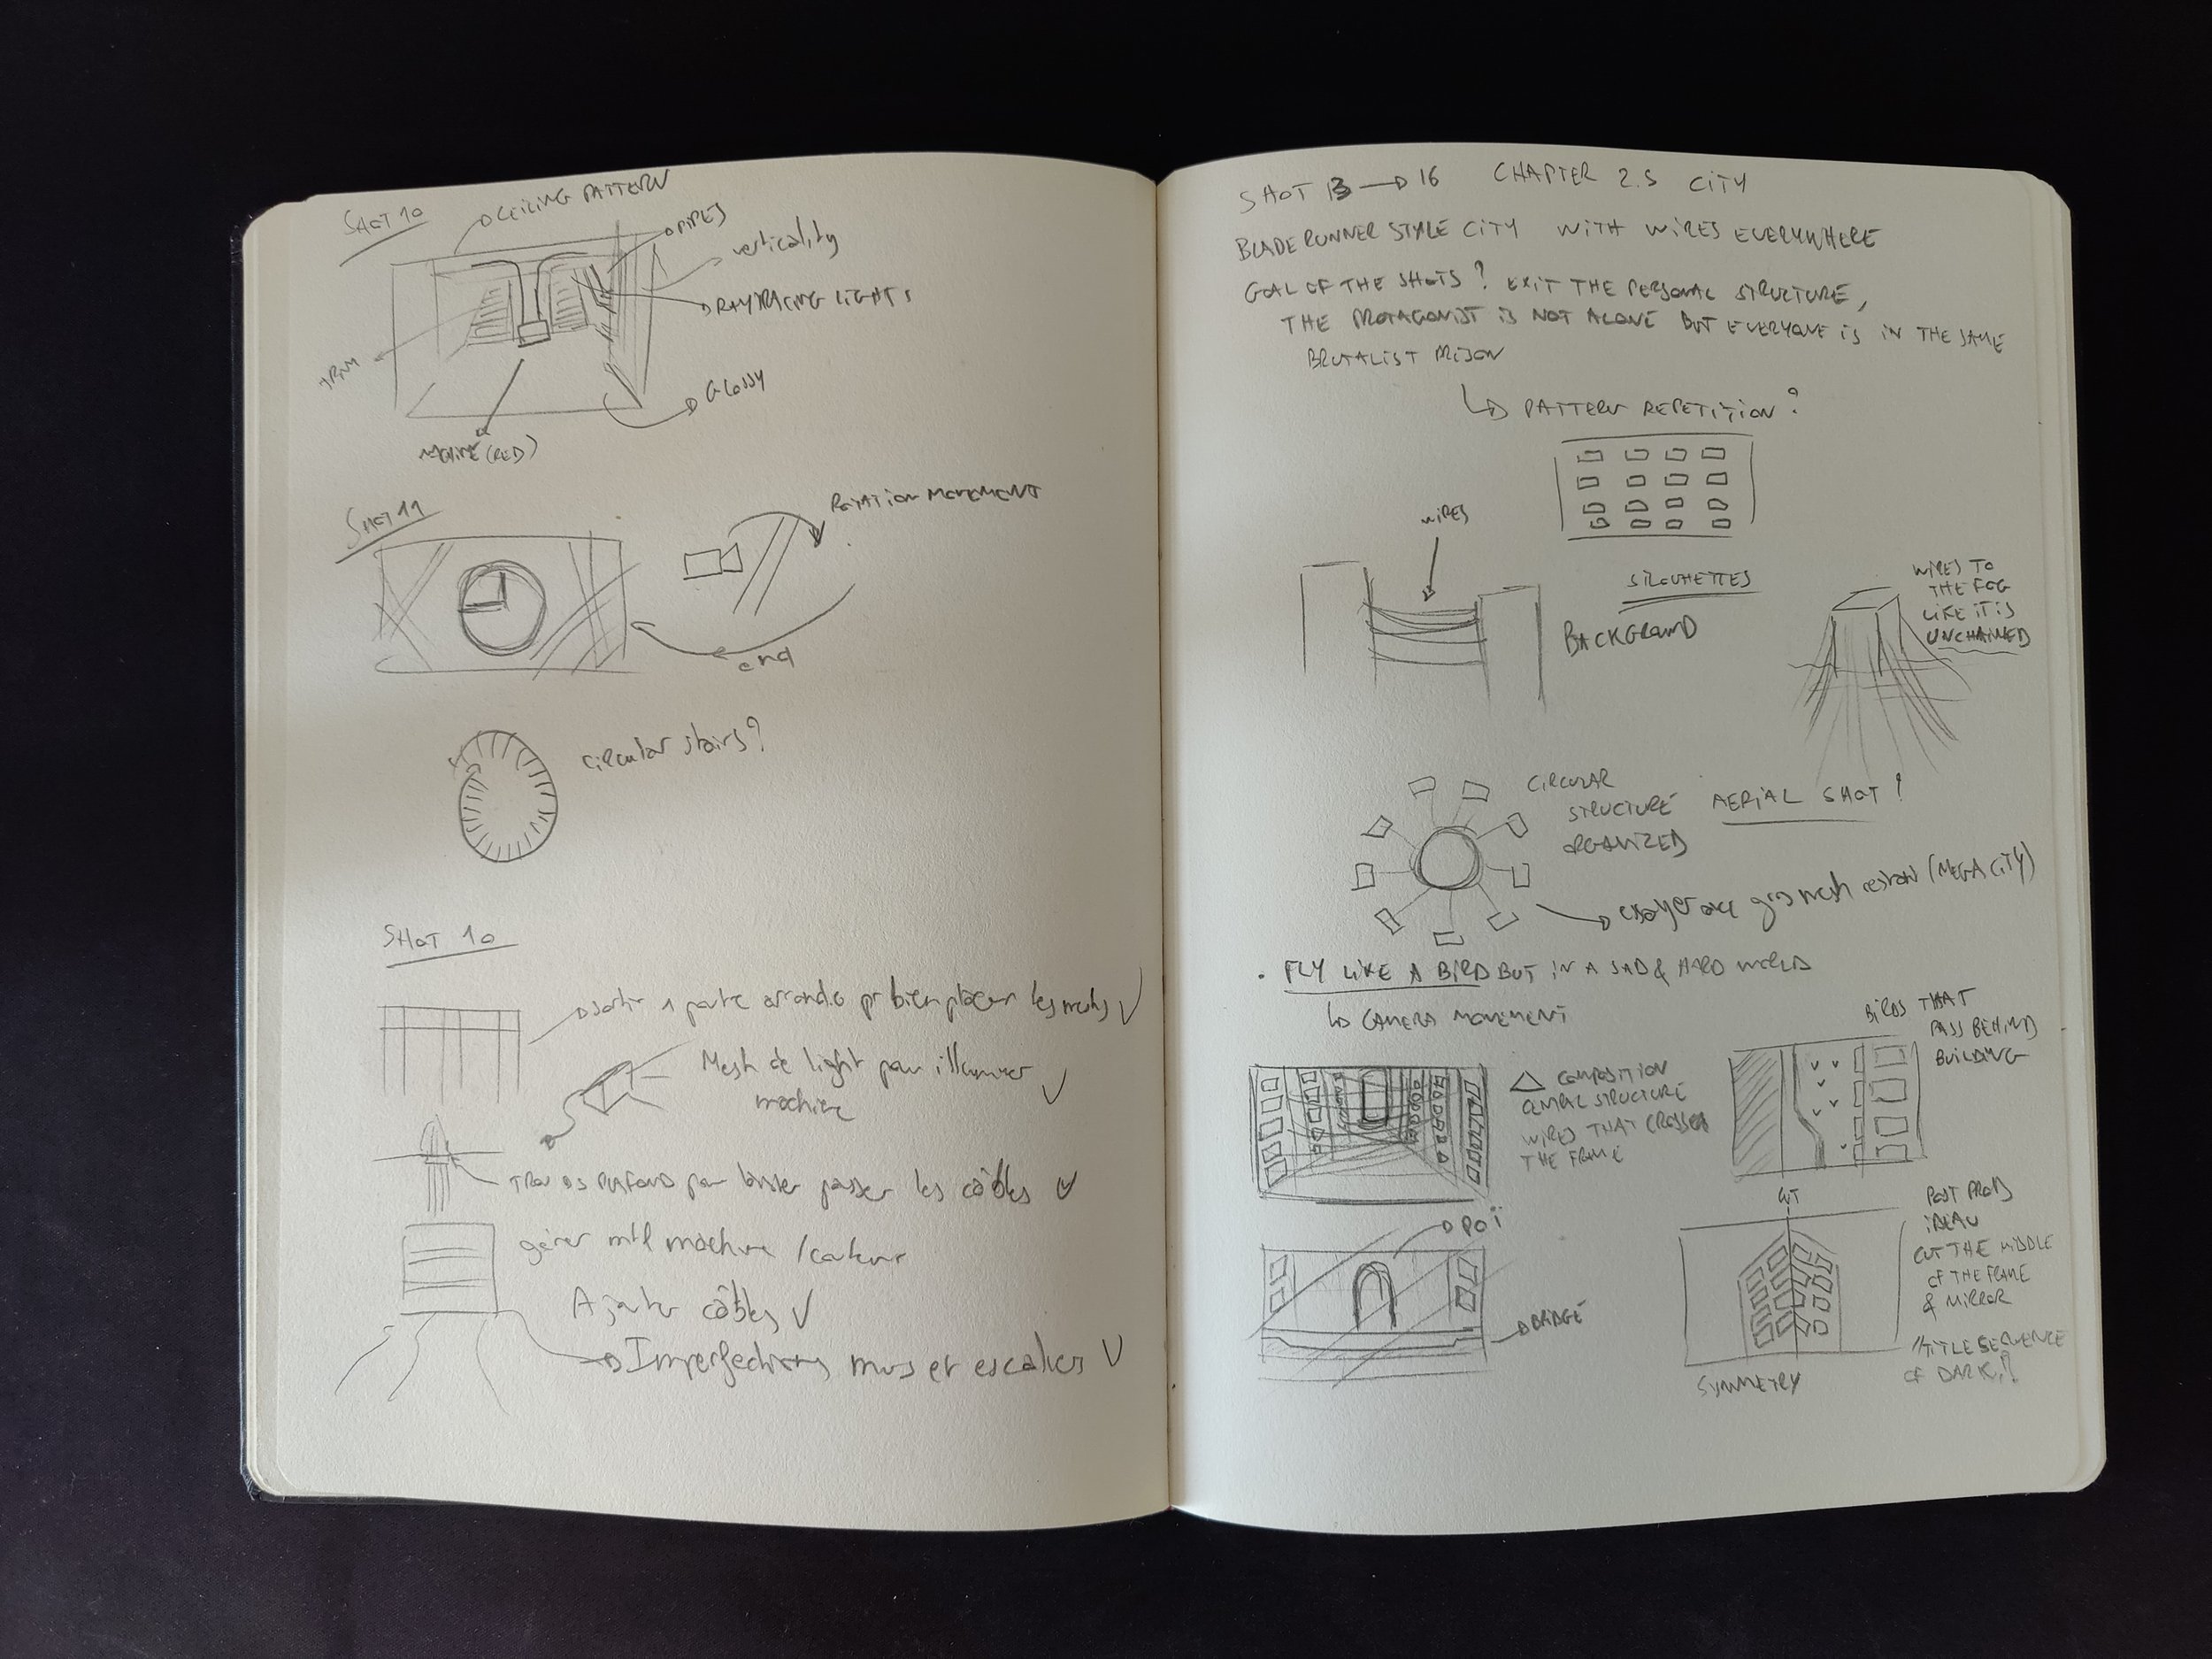 SHOT 10
CEILING PATTERN
PIPES
verticality
RAYTRACING LIGHTS
GLOSSY
(RED)
SHOT 11
ROTATION MOVEMENT
end
circular stairs?
SHOT 10
1 poutre arrondie pr bien placer les
Mesh de light pour illuminer
machine
TROU DS PLAFOND pour laisser passer les câbles
gérer mtl machine / couleur
Ajouter câbles
Imperfections murs et escaliers
SHOT 13 → 16 CHAPTER 2.5 CITY
BLADE RUNNER STYLE CITY WITH WIRES EVERYWHERE
GOAL OF THE SHOTS? EXIT THE PERSONAL STRUCTURE,
THE PROTAGONIST IS NOT ALONE BUT EVERYONE IS IN THE SAME
BRUTALIST PRISON
PATTERN REPETITION?
WIRES
SILOUHETTES
BACKGROUND
WIRES TO
THE FOG
LIKE IT IS
UNCHAINED
CIRCULAR
STRUCTURE
ORGANIZED
AERIAL SHOT?
essayer avec gros mesh (MEGA CITY)
. FLY LIKE A BIRD BUT IN A SAD & HARD WORLD
CAMERA MOVEMENT
COMPOSITION
CENTRAL STRUCTURE
WIRES THAT CROSSES
THE FRAME
BIRDS THAT
PASS BEHIND
BUILDING
POÏ
BRIDGE
CUT
SYMMETRY
POST PROD
CUT THE MIDDLE
OF THE FRAME
& MIRROR
TITLE SEQUENCE
OF DARK?